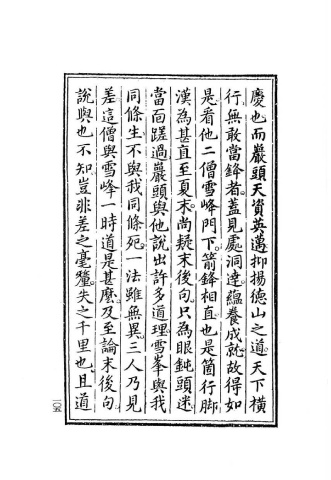 慶也而巖頭天資英邁抑揚德山之道天下橫
行無敢當鋒者蓋見處洞達蘊養成就故得如
是看他二僧雪峰門下箭鋒相直也是箇行脚
漢為甚直至夏末尚疑末後句只為眼鈍頭迷
當面蹉過巖頭與他說出許多道理雪峯與我
同條生不與我同條死一法雖無異三人乃見
差這僧與雪峰一時道是甚麼及至論末後句
說與也不知豈非差之毫釐失之千里也且道
一〇五